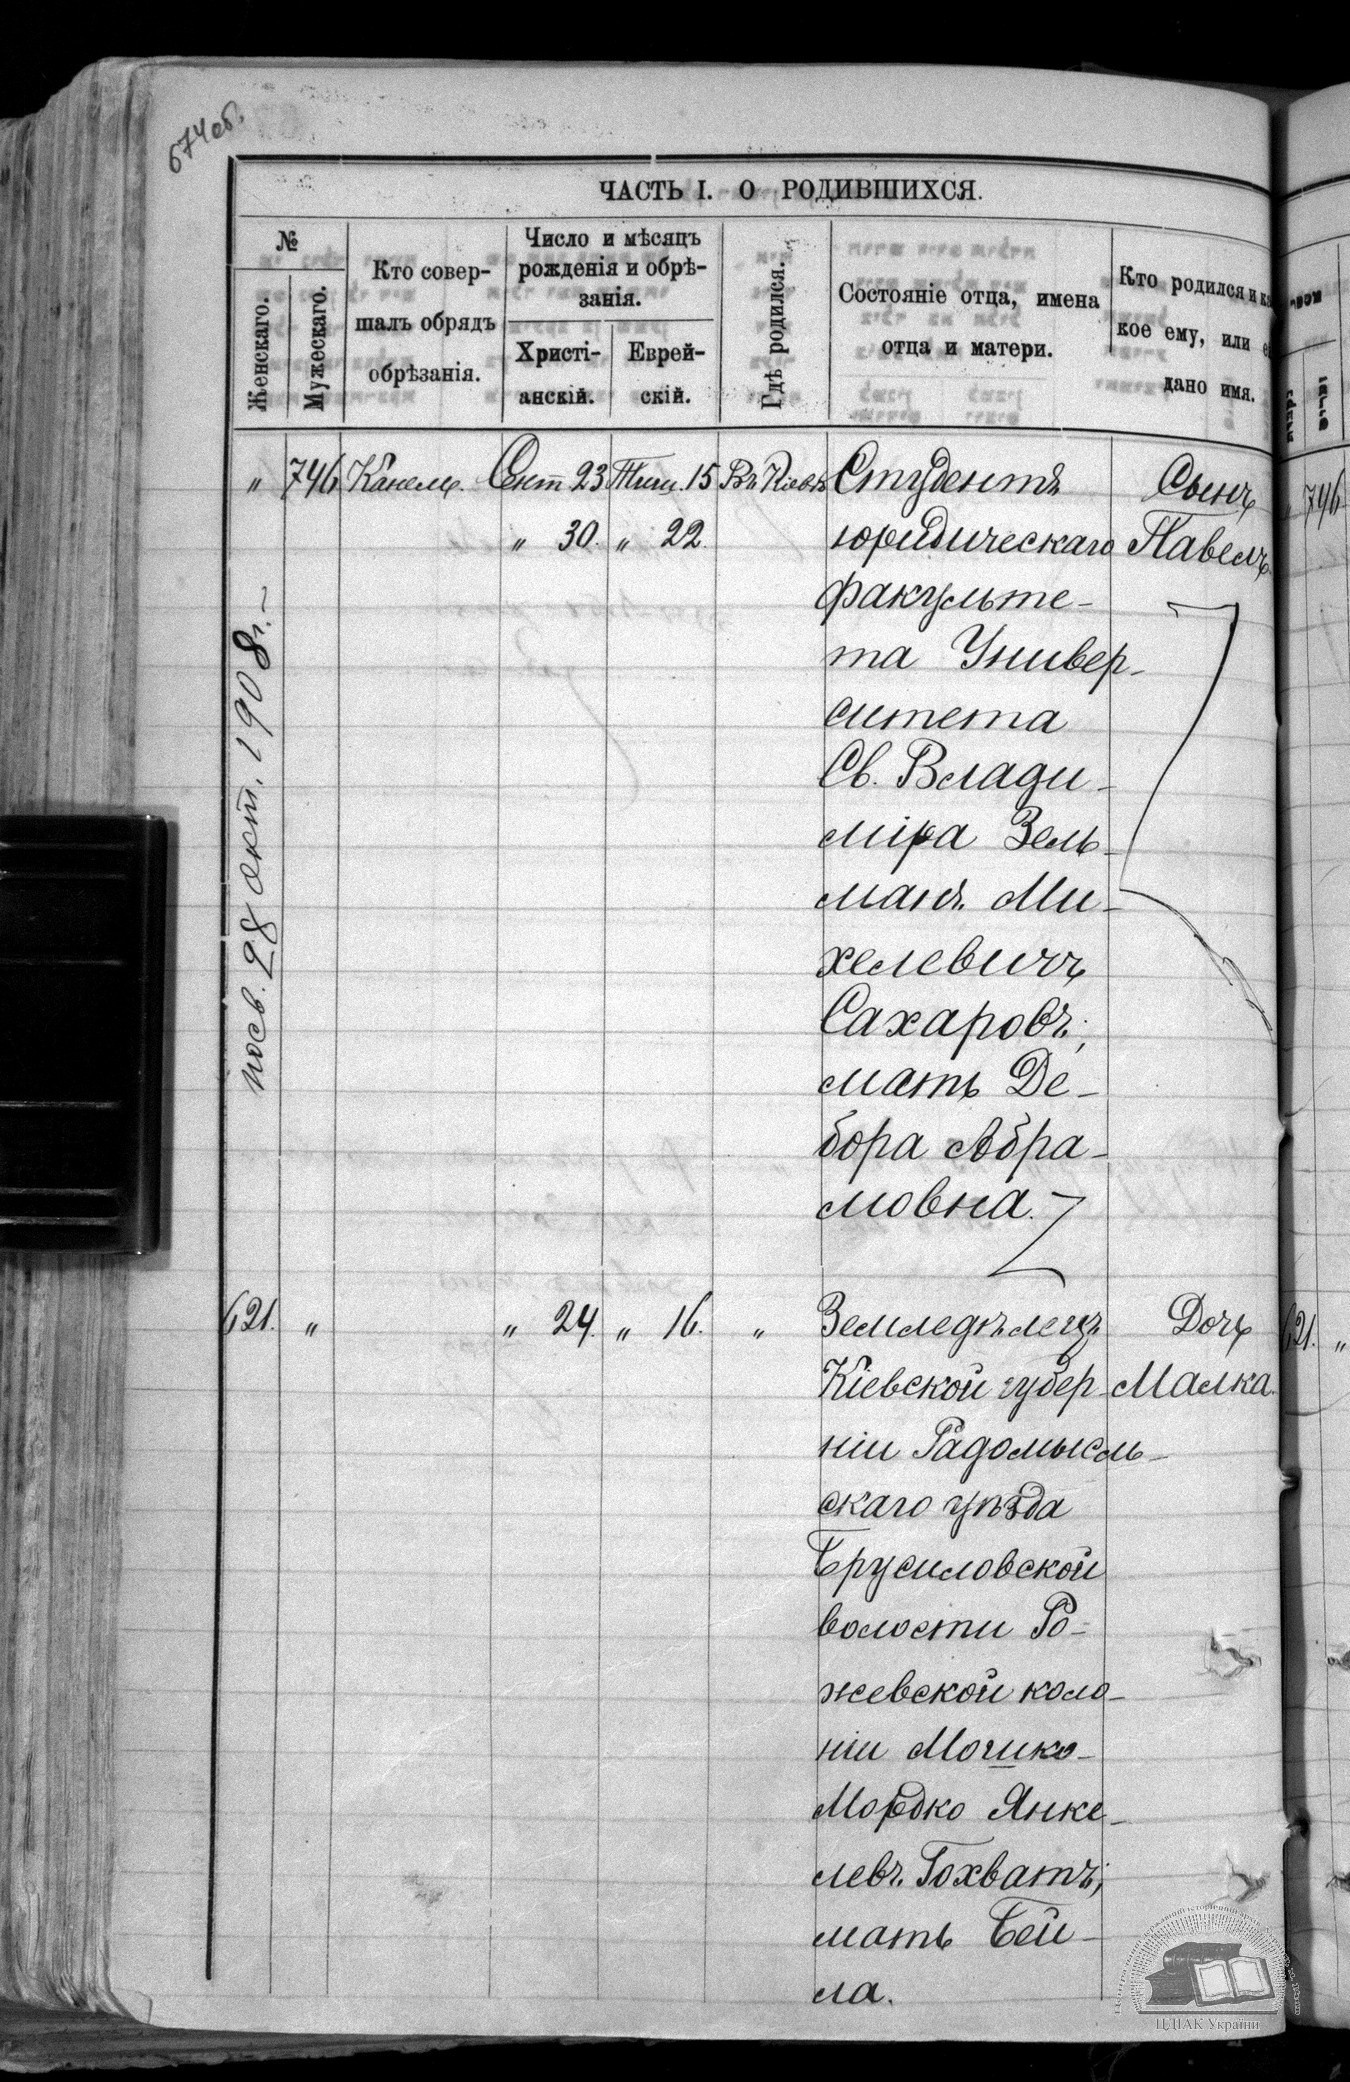 674 об.
ЧАСТЬ I. О РОДИВШИХСЯ.
№
Женскаго.
Мужескаго.
Кто совер-
шалъ обрядъ
обрѣзанія.
Число и мѣсяцъ
рожденія и обрѣ-
занія.
Христі-
анскій.
Еврей-
скій.
Гдѣ родился.
Состояніе отца, имена
отца и матери.
Кто родился и ка
кое ему, или е
дано имя.
" 746 Канелц. Сент 23 Тиш. 15 Въ Кіевѣ Студентъ Сынъ
" 30. " 22. юридическаго Павелъ
факульте-
та Универ-
ситета
Св. Влади-
міра Зель-
манъ Ми-
хелевичъ
Сахаровъ;
мать Де-
бора Абра-
мовна.
посв. 28 окт. 1908 г. –
621. " " 24. " 16. " Землѣделецъ Дочь
Кіевской губер- Малка.
ніи Радомысль-
скаго уѣзда
Брусиловской
волости Ро-
жевской коло-
ніи Мошко-
Мордко Янке-
левъ Гохватъ;
мать Бей-
ла.
746
621. "
ЦДІАК України